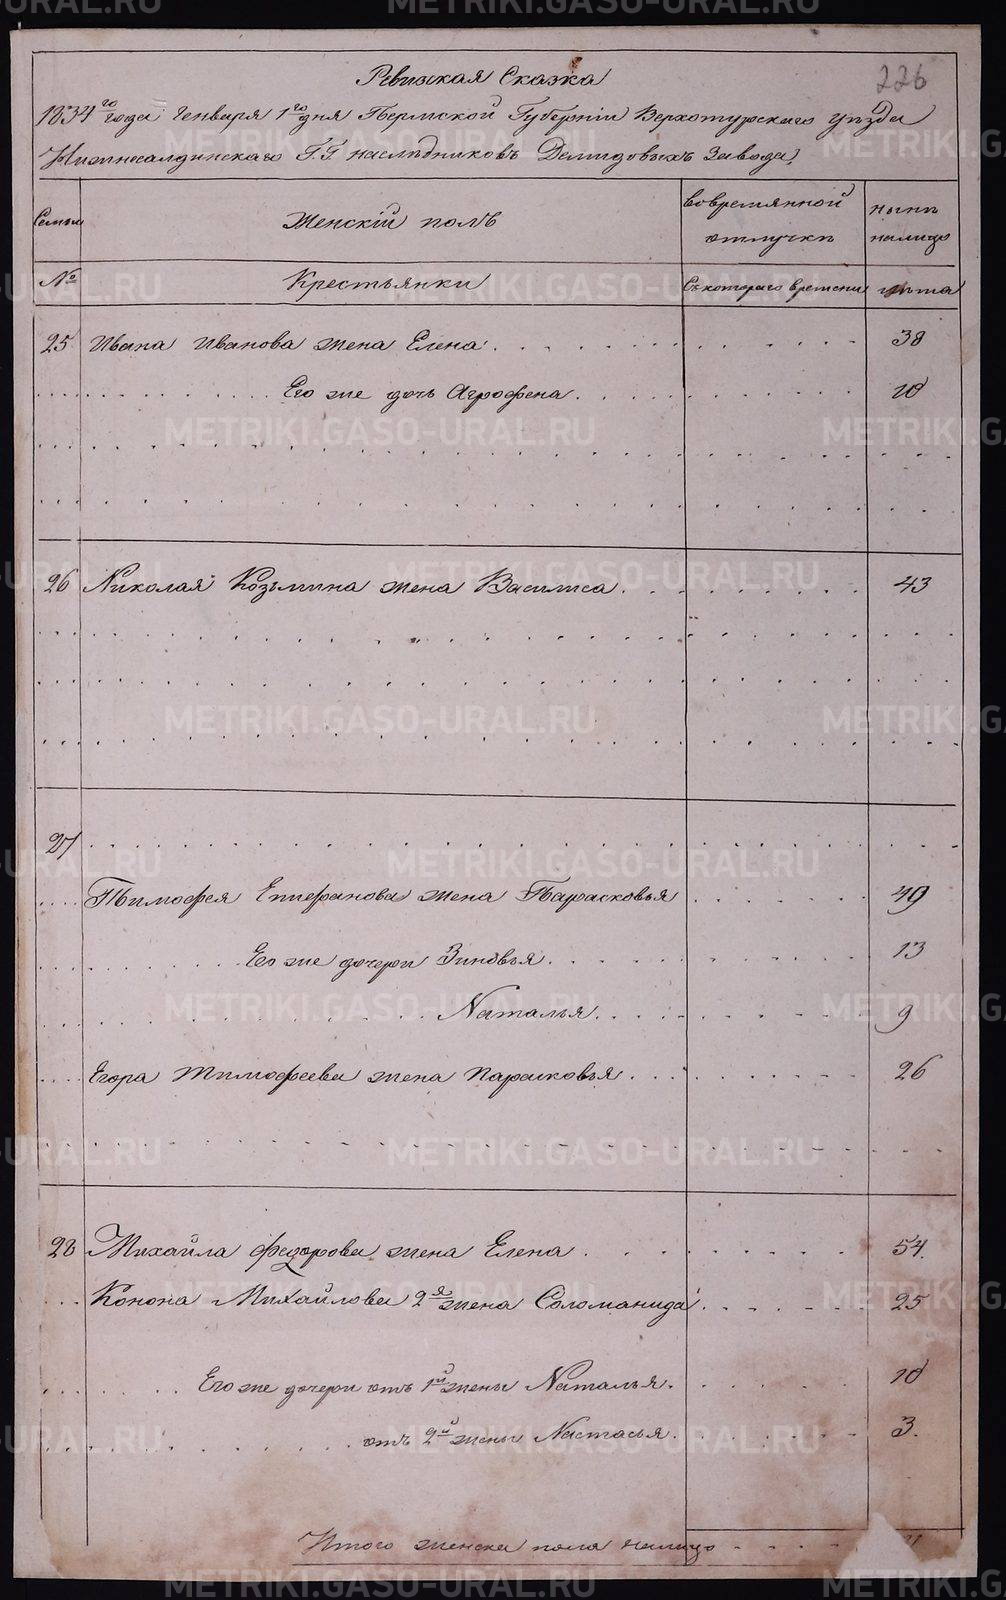 226
Ревизская Сказка
1834го года Генваря 1го дня Пермской Губерніи Верхотурскаго уѣзда
Нижнесалдинскаго Г.Г. наслѣдниковъ Демидовыхъ Завода,
Семьи
Женскій полъ
вовремянной отлучкѣ
нынѣ налицо
№
Крестьянки
Съ котораго времени
лѣта
25 Ивана Иванова жена Елена 38
Его же дочь Агрофена 10
26 Николая Козьмина жена Василиса 43
27
Тимофея Епифанова жена Парасковья 49
Его же дочери Зиновья 13
Наталья 9
Егора Тимофеева жена Парасковья 26
28 Михайла Федорова жена Елена 54.
Конона Михайлова 2я жена Соломанида 25
Его же дочери отъ 1й жены Наталья 10
отъ 2й жены Настасья 3.
Итого женска пола налицо
METRIKI.GASO-URAL.RU